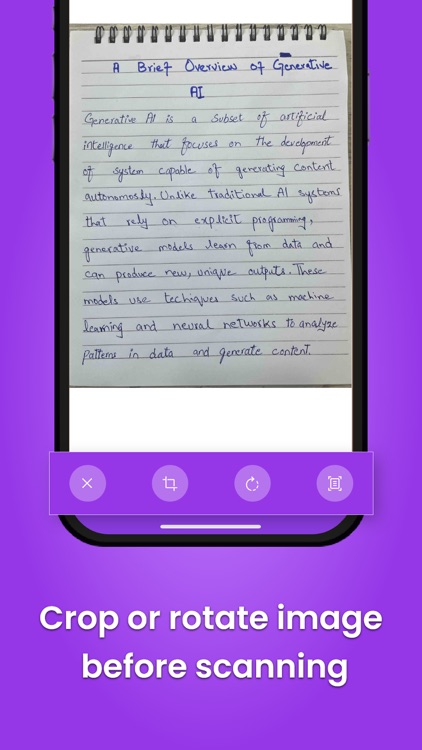 A Brief Overview of Generative
AI
Generative AI is a subset of artificial
intelligence that focuses on the development
of system capable of generating content
autonomosly. Unlike traditional AI systems
that rely on explicit programming,
generative models learn from data and
can produce new, unique outputs. These
models use techiques such as machine
learning and neural networks to analyze
patterns in data and generate content.
Crop or rotate image
before scanning